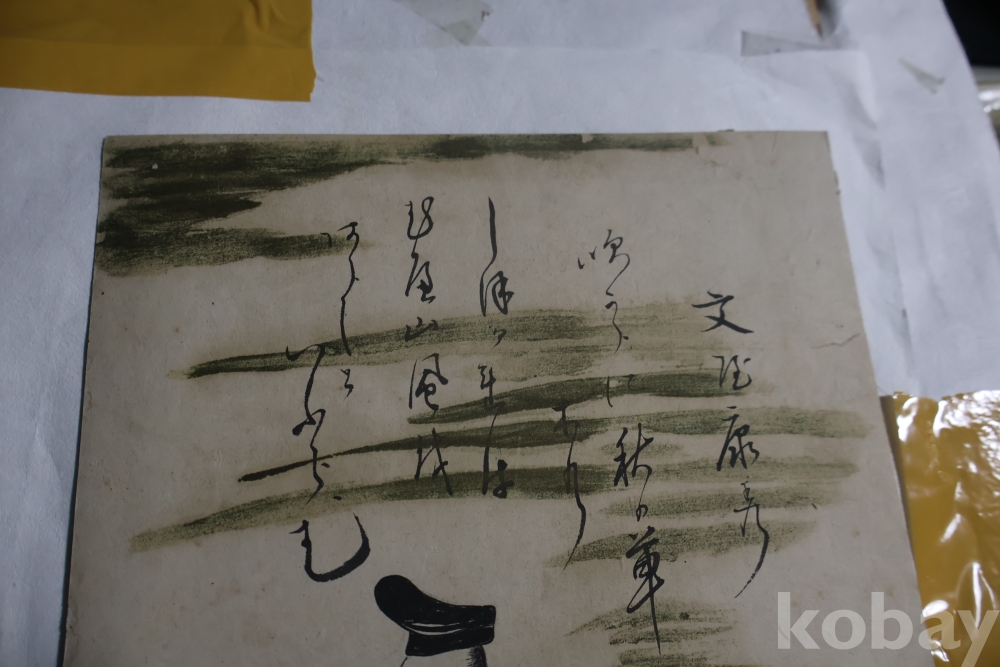 文屋康秀
吹からに秋の草
木の
しほるれは
むへ山風を
あらしと
いふらむ
kobay